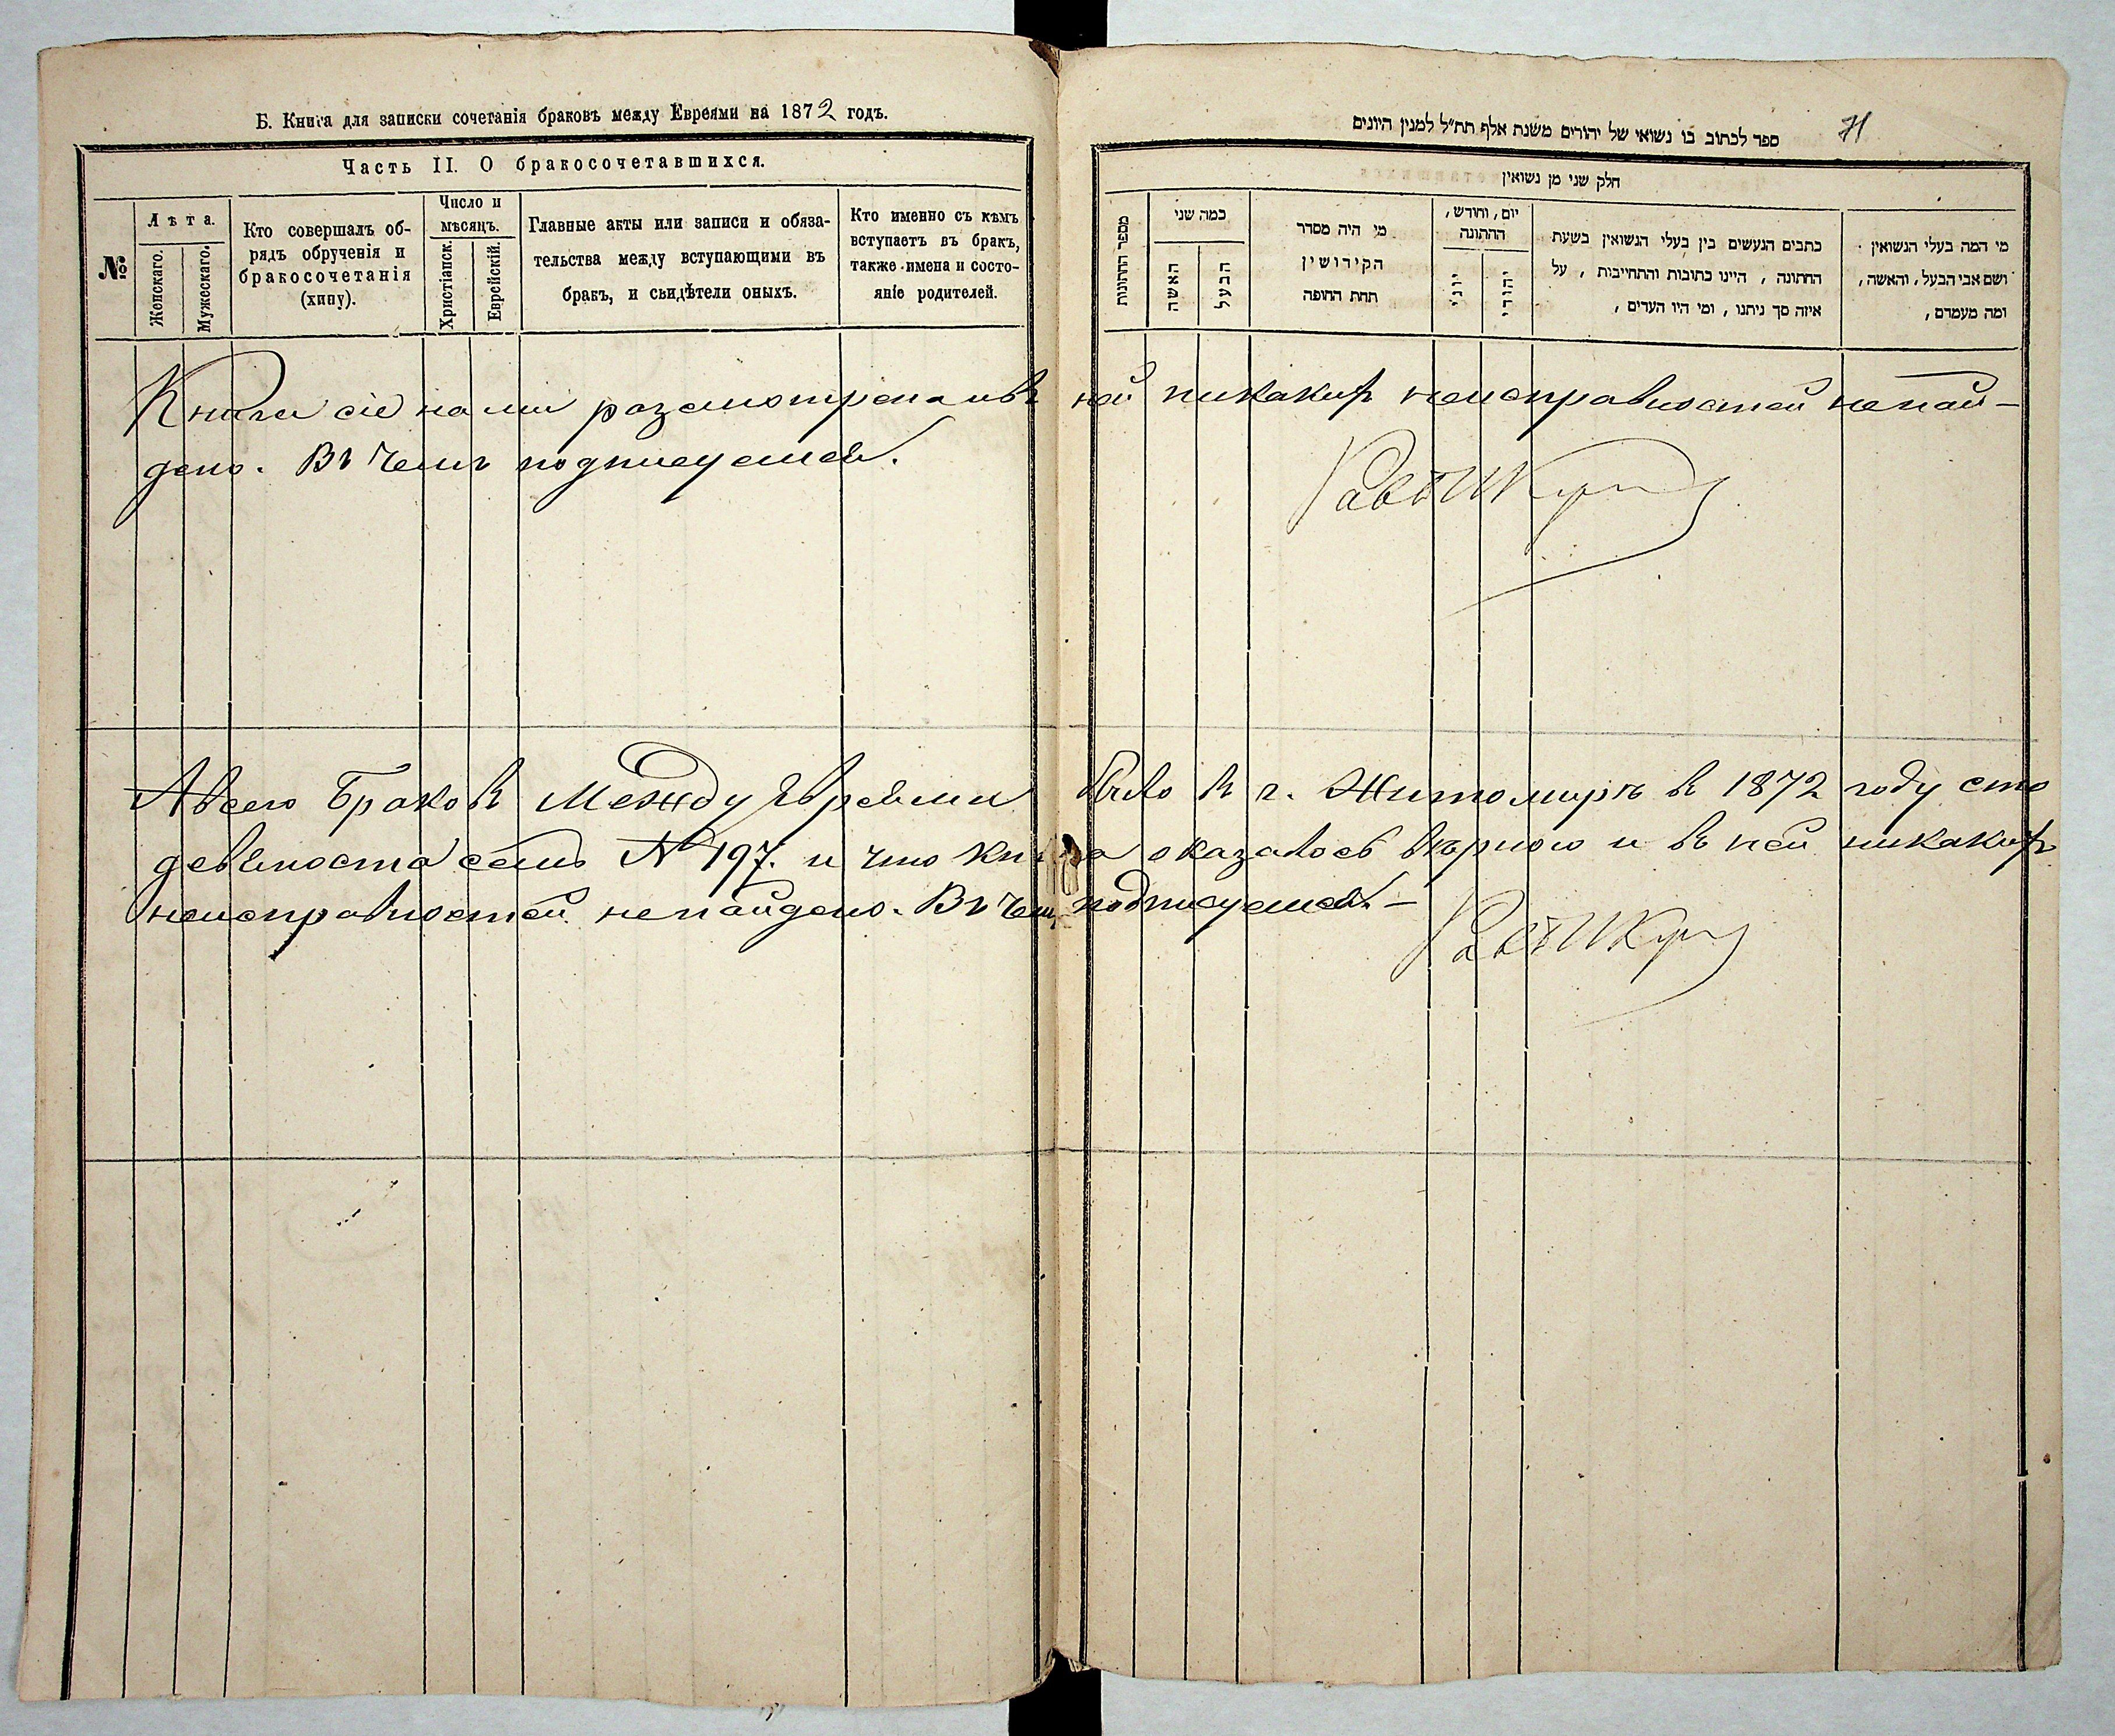 Б. Книга для записки сочетанія браковъ между Евреями на 1872 годъ.
Часть II. О бракосочетавшихся.
№
Лѣта.
Женскаго.
Мужескаго.
Кто совершалъ об-
рядъ обрученія и
бракосочетанія
(хипу).
Число и
мѣсяцъ.
Христіанск.
Еврейскій.
Главные акты или записи и обяза-
тельства между вступающими въ
бракъ, и свидѣтели оныхъ.
Кто именно съ кѣмъ
вступаетъ въ бракъ,
также имена и состо-
яніе родителей.
71
ספר לכתוב בו נשואי של יהודים משנת אלף תת״ל למנין היונים
חלק שני מן נשואין
מי המה בעלי הנשואין
ושם אבי הבעל, והאשה,
ומה מעמדם,
כתבים הנעשים בין בעלי הנשואין בשעת
החתונה, היינו כתובות והתחייבות, על
איזה סך ניתנו, ומי היו העדים,
יום, וחודש,
החתונה
יהודי
יוני
מי היה מסדר
הקידושין
תחת החופה
כמה שני
הבעל
האשה
מספר החתונות
Книга сіе нами разсмотрена ивъ ней никакихъ неисправностей ненай-
дено. Въ чемъ подписуемся.
Равв
А всего Браковъ Между Евреями было въ г. Житомирѣ въ 1872 году сто
девяноста семь № 197. и что книга оказалось вѣрною и въ ней никакихъ
неисправностей ненайдено. Въ чемъ подписуемся. —
Равв